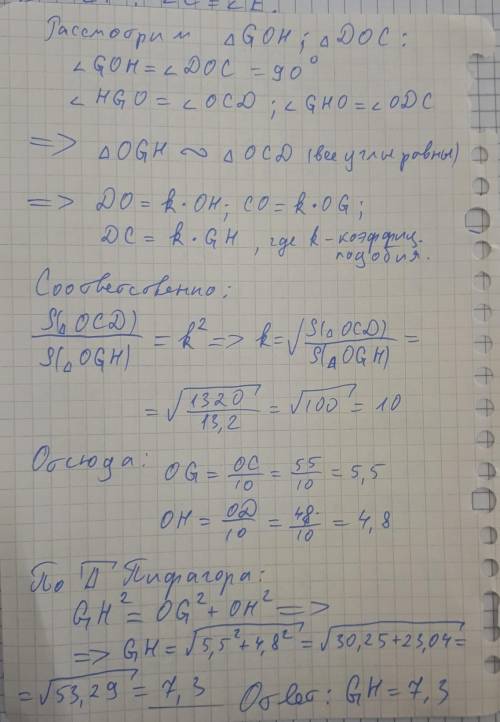 Рассмотрим △GOH; △DOC:
∠GOH = ∠DOC = 90°
∠HGO = ∠OCD; ∠GHO = ∠ODC
=> △OGH ~ △OCD (все углы равны)
=> DO = k·OH; CO = k·OG;
DC = k·GH, где k – коэффиц. подобия.
Соответственно:
S(△OCD)/S(△OGH) = k² => k = √(S(△OCD)/S(△OGH)) =
= √(1320/13,2) = √100 = 10
Отсюда: OG = OC/10 = 55/10 = 5,5
OH = OD/10 = 48/10 = 4,8
По Т Пифагора:
GH² = OG² + OH² =>
=> GH = √(5,5² + 4,8²) = √(30,25 + 23,04) =
= √53,29 = 7,3 Ответ: GH = 7,3